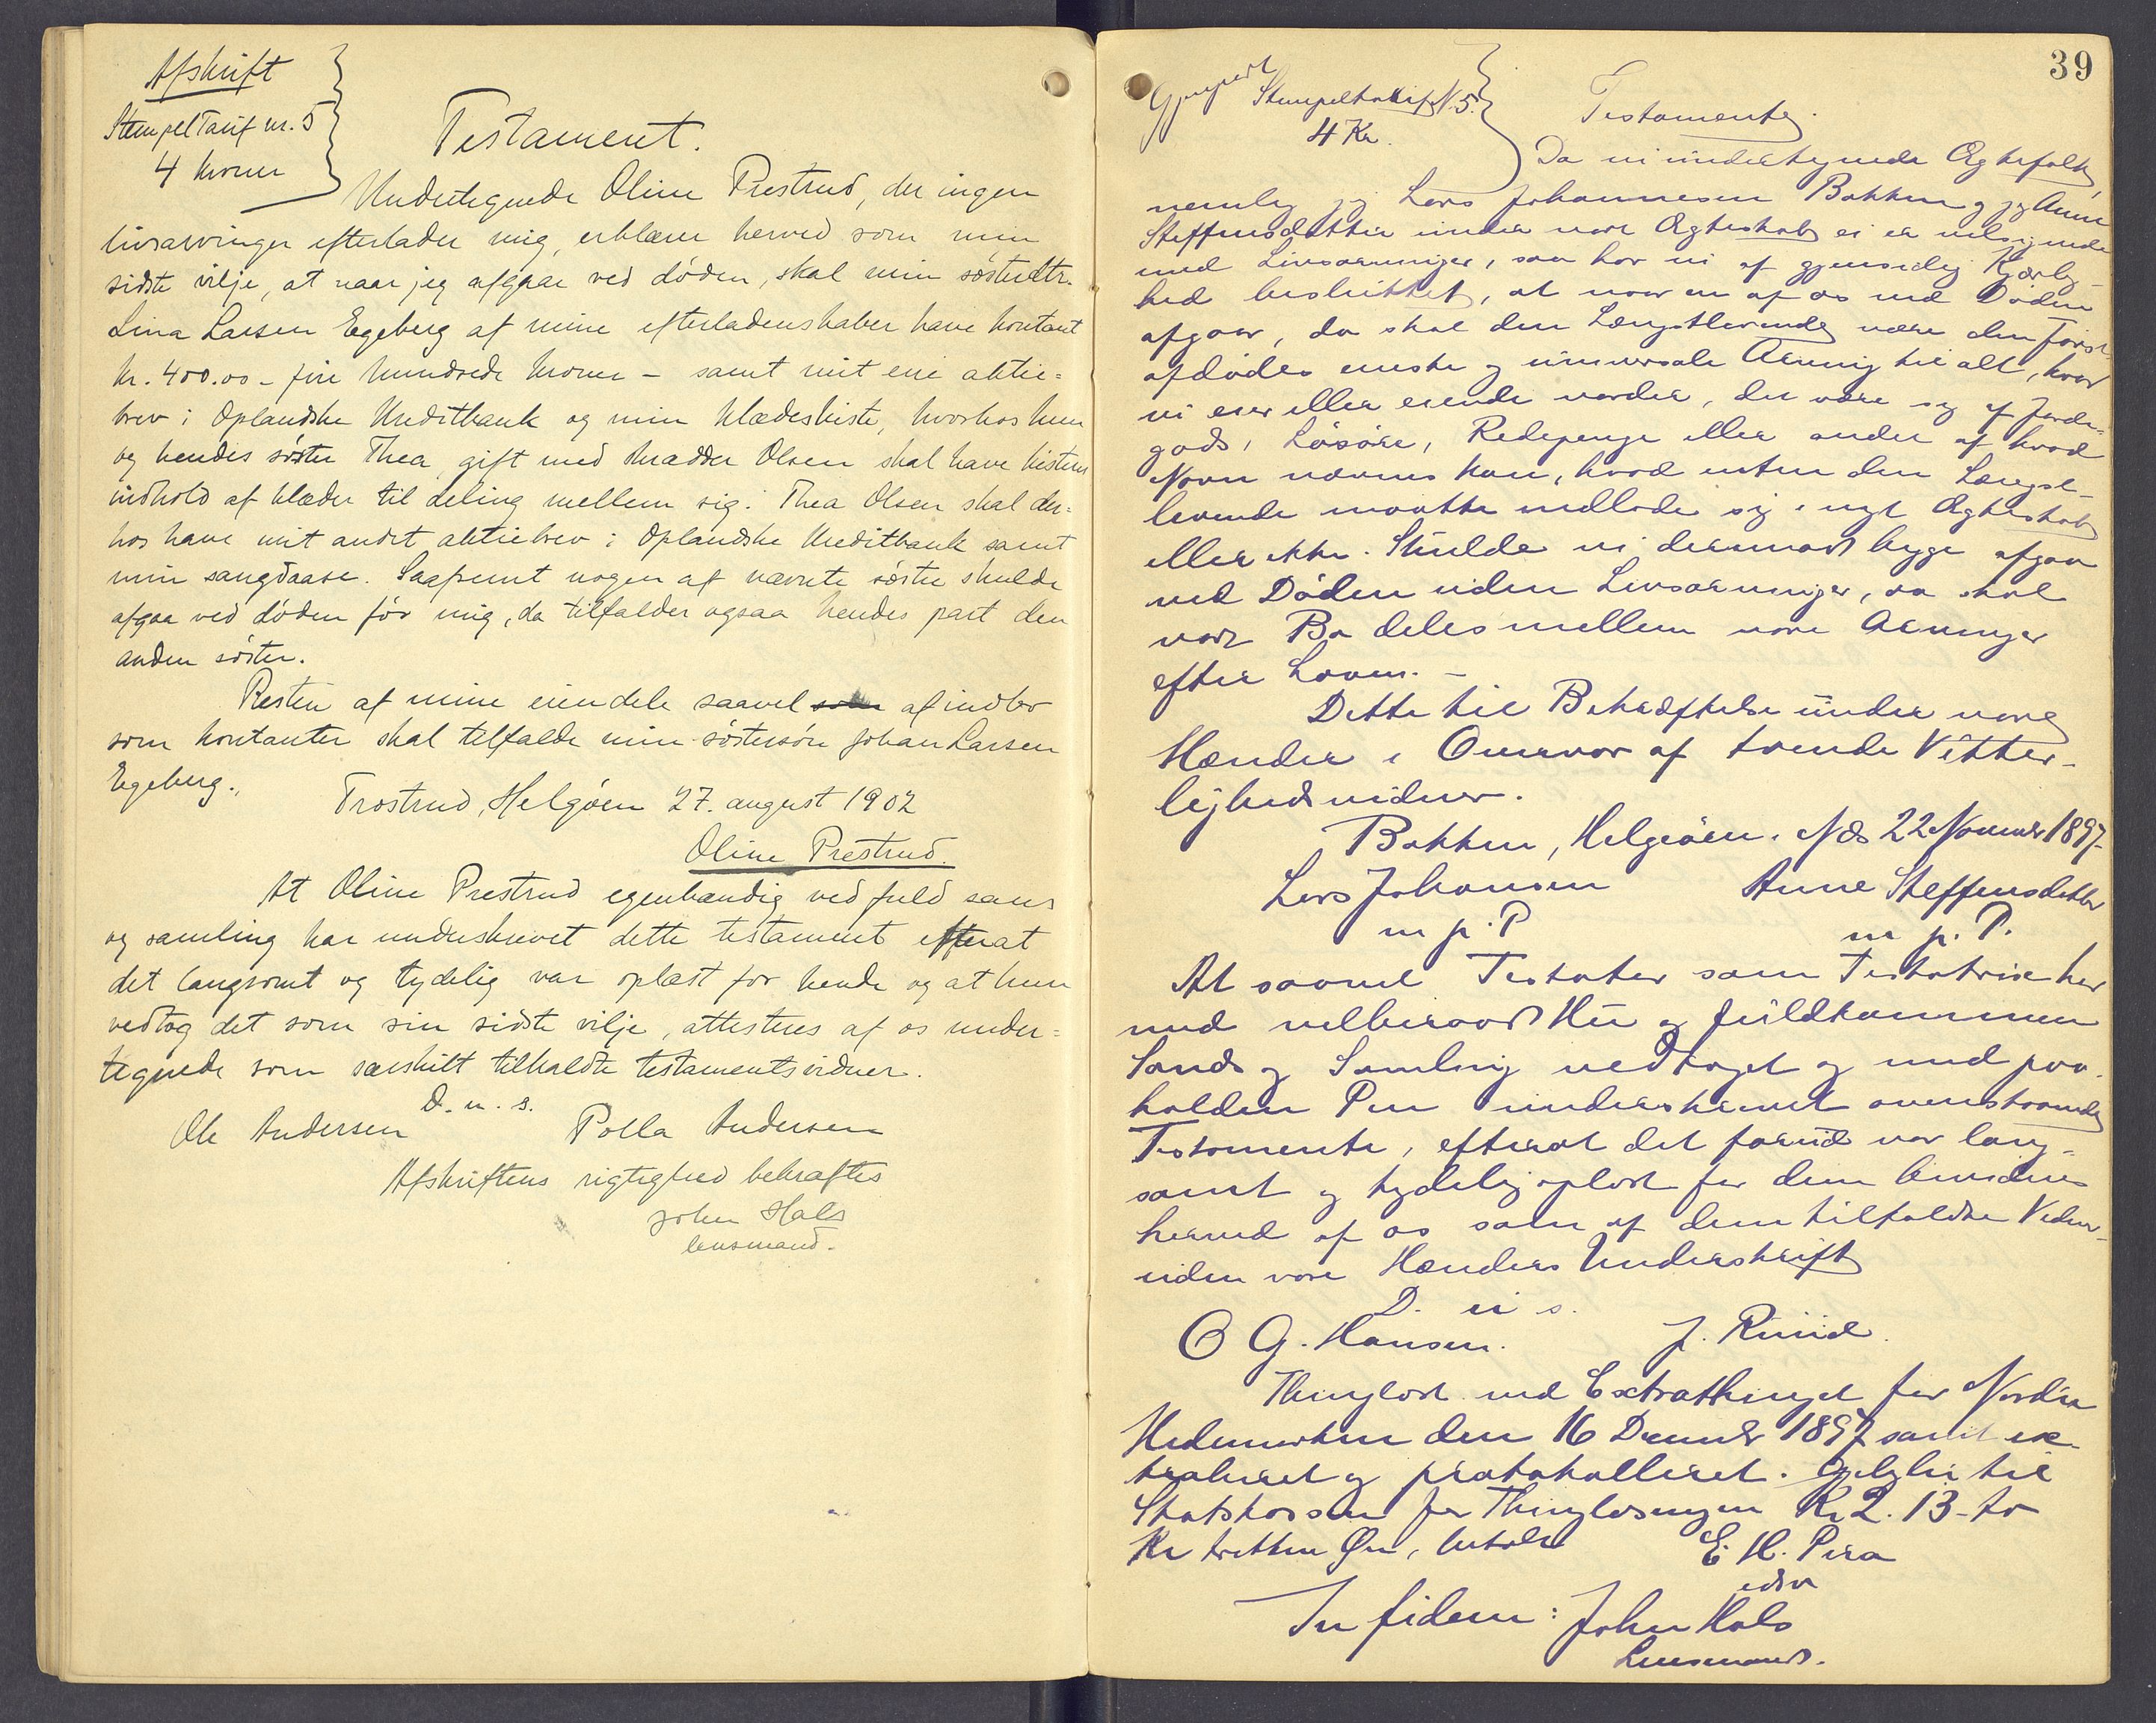 Afskrift
Stempel Tarif nr. 5
4 kroner
Testament.
Undertegnede Oline Prestrud, der ingen
livsarvinger efterlader mig, erklærer herved som min
sidste vilje, at naar jeg afgaar ved døden, skal min søsterdtr.
Lina Larsen Egeberg af mine efterladenskaber have kontant
kr. 400.00 - fire hundrede kroner - samt mit ene aktie=
brev i Oplandske Kreditbank og min klædeskiste, hvorhos hun
og hendes søster Thea, gift med skrædder Olsen skal have kistens
indhold af klæder til deling mellem sig. Thea Olsen skal der=
hos have mit andet aktiebrev i Oplandske Kreditbank samt
min sangdaase. Saafremt nogen af nævnte søstre skulde
afgaa ved døden før mig, da tilfalder ogsaa hendes part den
anden søster.
Resten af mine eiendele saavel som af indbo
som kontanter skal tilfalde min søstersøn Johan Larsen
Egeberg.
Trostrud, Helgøen 27. august 1902
Oline Prestrud.
At Oline Prestrud egenhændig ved fuld sans
og samling har underskrevet dette testament efterat
det langsomt og tydelig var oplæst for hende og at hun
vedtog det som sin sidste vilje, attesteres af os under=
tegnede som særskilt tilkaldte testamentsvidner.
D. u. s.
Ole Andersen Polla Andersen
Afskriftens rigtighed bekræftes
John Hals
lensmand.
39
Gjenpart
Stempeltarif N. 5.
4 Kr.
Testamente.
Da vi undertegnede Ægtefolk,
nemlig jeg Lars Johannesen Bakken og jeg Anne
Steffensdatter under vort Ægteskab ei er velsignede
med Livsarvinger, saa har vi af gjensidig Kjærlig-
hed besluttet, at naar en af os ved Døden
afgaar, da skal den Længstlevende være den først-
afdødes eneste og universale Arving til alt, hvad
vi eier eller eiende vorder, det være sig af Jorde-
gods, Løsøre, Redepenge eller andet af hvad
Navn nævnes kan, hvad enten den Længst-
levende maatte indlade sig i nyt Ægteskab
eller ikke. Skulde vi derimod begge afgaa
ved Døden uden Livsarvinger, saa skal
vort Bo deles mellem vore Arvinger
efter Loven. -
Dette til Bekræftelse under vore
Hænder i Overvær af tvende Vitter-
lighedsvidner.
Bakken, Helgeøen. Næs 22 November 1897.
Lars Johansen Anne Steffensdatter
m. p. P. m. p. P.
At saavel Testator som Testatrix har
med velberaad Hu og fuldkommen
Sands og Samling vedtaget og med paa-
holden Pen underskrevet ovenstaaende
Testamente, efterat det forud var lang-
somt og tydelig oplæst for dem bevidnes
herved af os som af dem tilkaldte Vidner
under vore Hænders Underskrift
D. u. s.
O G. Hansen. J. Ruud.
Thinglæst ved Extrathinget for Nordre
Hedemarken den 16 December 1897 samt ex-
traheret og protokolleret. Gebyhr til
Statskassen for Thinglæsningen Kr 2. 13 - to
Kr tretten Øre, betalt E. H. Pera
edsv
In fidem: John Hals
Lensmand.